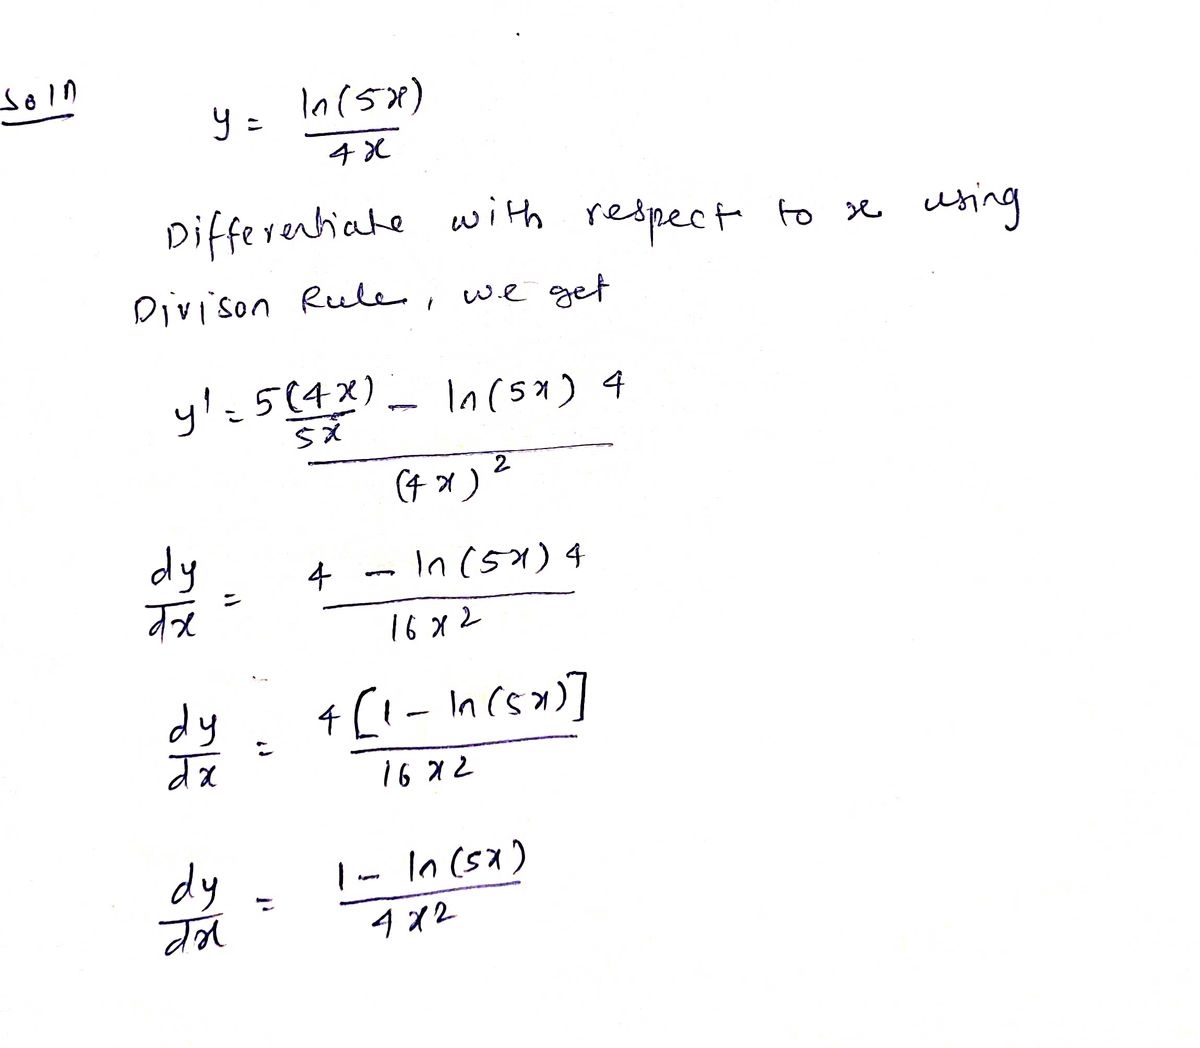 Soln
y = ln(5x) / 4x
Differentiate with respect to x using
Divison Rule, we get
y' = 5(4x)/5x - ln(5x) 4 / (4x)²
dy/dx = 4 - ln(5x) 4 / 16x2
dy/dx = 4[1 - ln(5x)] / 16x2
dy/dx = 1 - ln(5x) / 4x2